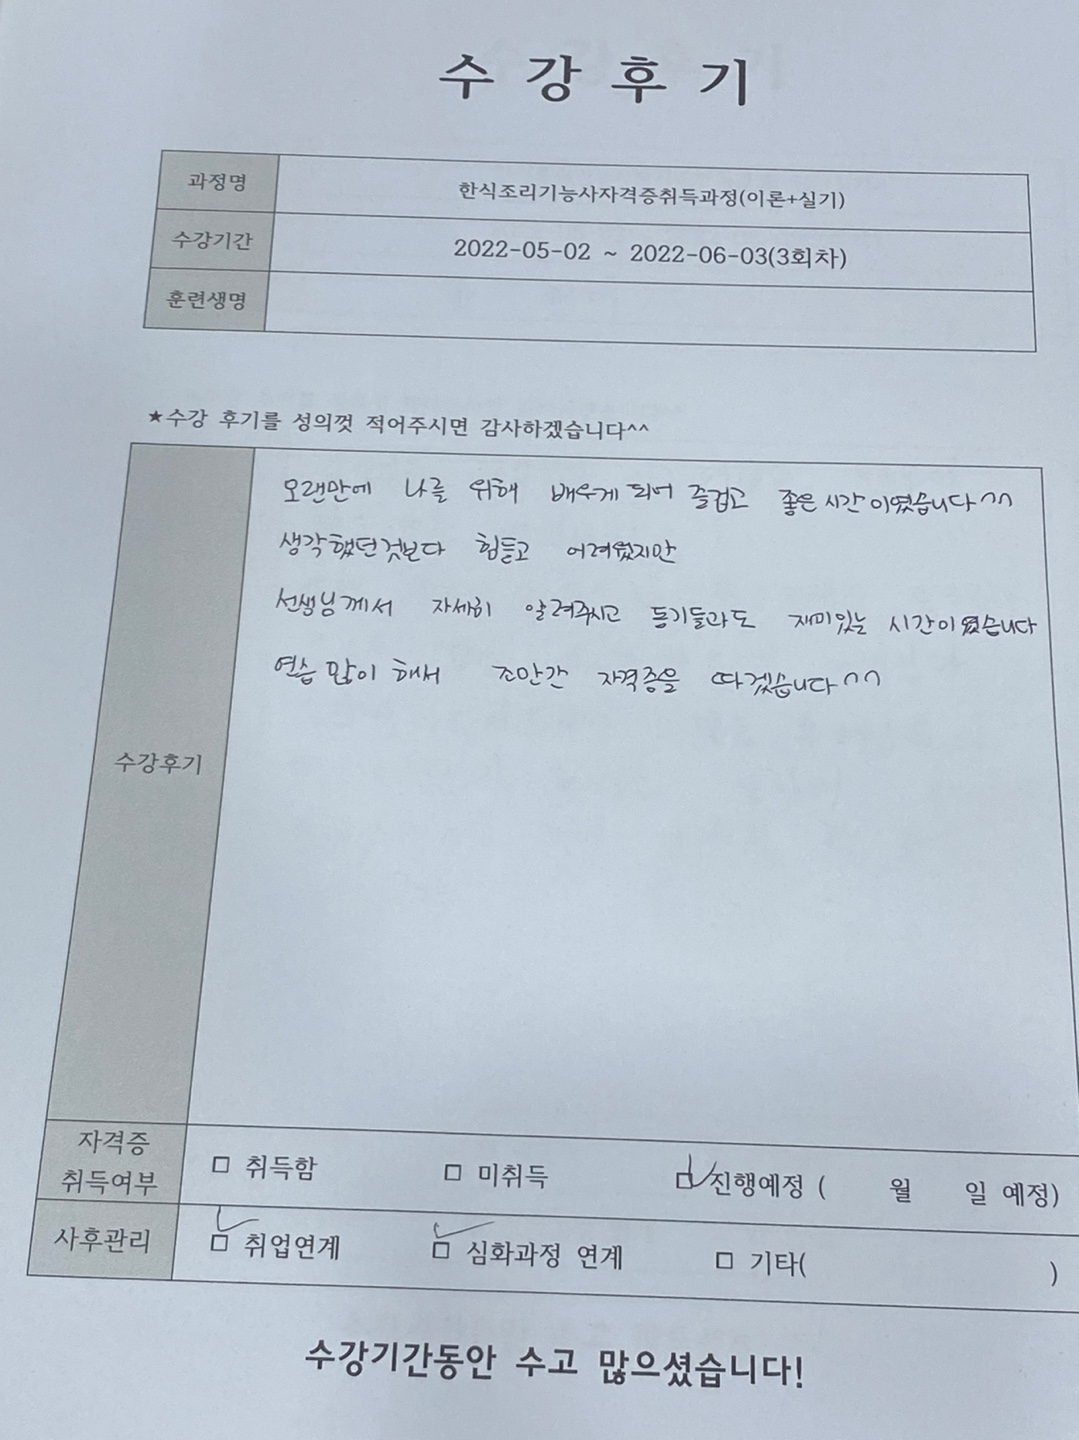 수 강 후 기
과정명 한식조리기능사자격증취득과정(이론+실기)
수강기간 2022-05-02 ~ 2022-06-03(3회차)
훈련생명
★수강 후기를 성의껏 적어주시면 감사하겠습니다^^
오랜만에 나를 위해 배우게 되어 즐겁고 좋은 시간이였습니다^^
생각했던것보다 힘들고 어려웠지만
선생님께서 자세히 알려주시고 동기들과도 재미있는 시간이였습니다
연습 많이 해서 조만간 자격증을 따겠습니다^^
수강후기
자격증
취득여부 □ 취득함 □ 미취득 ☑ 진행예정 ( 월 일 예정)
사후관리 ☑ 취업연계 ☑ 심화과정 연계 □ 기타( )
수강기간동안 수고 많으셨습니다!